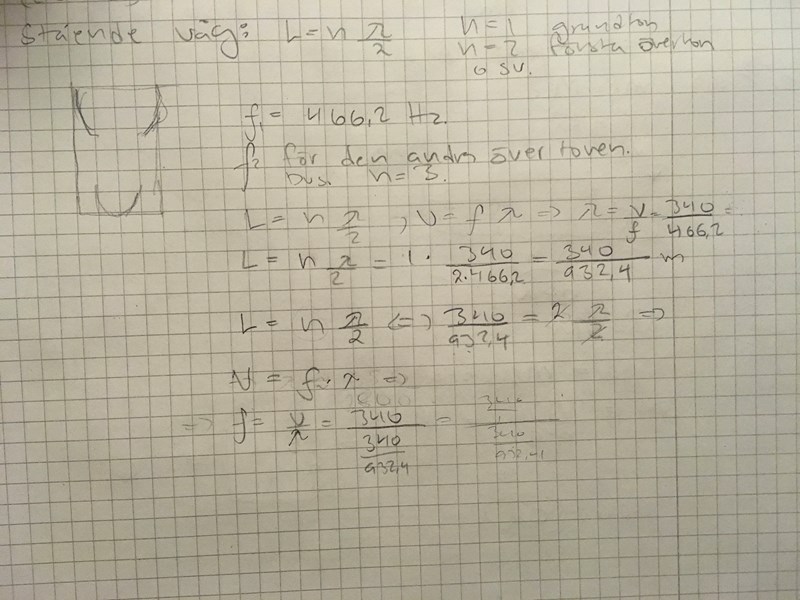 Stående våg: L = n λ/2 n = 1 grundton
n = 2 första överton
o sv.
f₁ = 466,2 Hz.
f? för den andra övertonen.
dvs. n = 3.
L = n λ/2 , v = f λ => λ = v/f = 340/466,2 =
L = n λ/2 = 1 · 340/(2·466,2) = 340/932,4 m
L = n λ/2 <=> 340/932,4 = 2 λ/2 =>
v = f · λ =>
=> f = v/λ = 340/(340/932,4) =